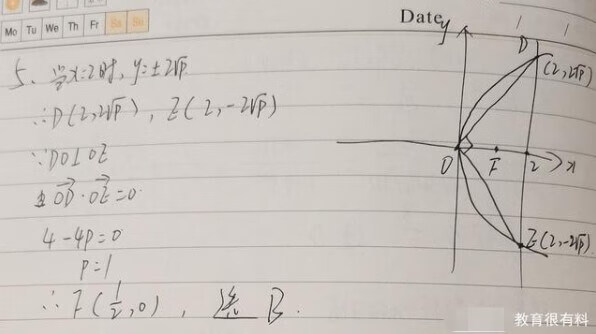 Date
Mo Tu We Th Fr Sa Su
5、当x=2时,y=±2√p
∴D(2,2√p),E(2,-2√p)
∵DO⊥OE
OD·OE=0
4-4p=0
p=1
∴F(1/2,0),选B.
y
D
(2,2√p)
O F 2 x
E(2,-2√p)
教育很有料